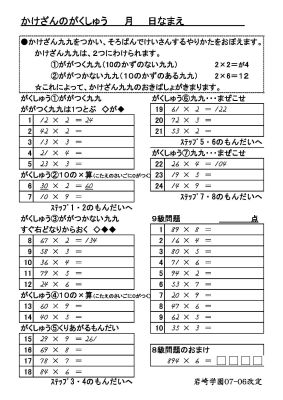 かけざんのがくしゅう　月　日なまえ
●かけざん九九をつかい、そろばんでけいさんするやりかたをおぼえます。
かけざん九九は、2つにわけられます。
①ががつく九九(10のかずのない九九) 2×2=が4
②ががつかない九九(10のかずのある九九) 2×6=12
☆これによって、かけざん九九のおきばしょがきまります。
がくしゅう①ががつく九九
ががつく九九は1つとぶ ◇が◆
1 12 × 2 = 24
2 42 × 2 =
3 13 × 3 =
4 21 × 4 =
5 23 × 3 =
がくしゅう②10の×算
6 30 × 2 = 60
7 10 × 9 =
ステップ1・2のもんだいへ
がくしゅう③ががつかない九九
すぐ右どなりからおく ◇◆◆
8 67 × 2 = 134
9 58 × 3 =
10 36 × 4 =
11 79 × 5 =
12 24 × 6 =
がくしゅう④10の×算
13 60 × 9 =
14 40 × 5 =
がくしゅう⑤くりあがるもんだい
15 29 × 9 = 261
16 69 × 8 =
17 78 × 9 =
18 84 × 6 =
ステップ3・4のもんだいへ
がくしゅう⑥九九・・・まぜこせ
19 61 × 2 = 122
20 72 × 3 =
21 53 × 2 =
ステップ5・6のもんだいへ
がくしゅう⑦九九・・・まぜこせ
22 26 × 4 = 104
23 19 × 5 =
24 14 × 9 =
ステップ7・8のもんだいへ
9級問題 点
1 89 × 8 =
2 16 × 4 =
3 80 × 5 =
4 71 × 6 =
5 94 × 2 =
6 53 × 7 =
7 20 × 9 =
8 47 × 6 =
9 62 × 5 =
10 35 × 3 =
8級問題のおまけ
894 × 6 = □□□□
岩崎学園07-06改定